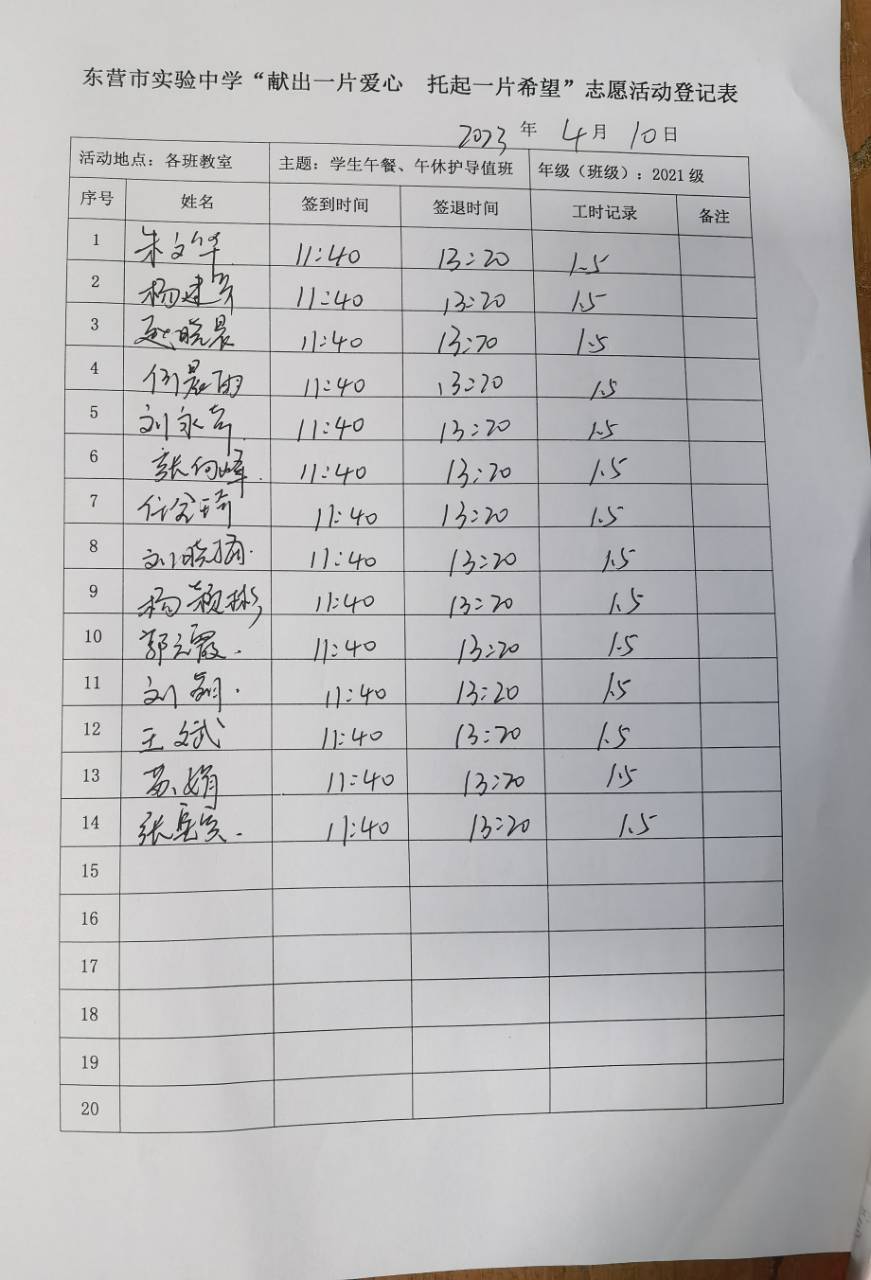 东营市实验中学“献出一片爱心　托起一片希望”志愿活动登记表
2023 年 4 月 10 日
活动地点：各班教室 主题：学生午餐、午休护导值班 年级（班级）：2021 级
序号 姓名 签到时间 签退时间 工时记录 备注
1 朱文华 11:40 13:20 1.5
2 杨建芳 11:40 13:20 1.5
3 赵晓晨 11:40 13:20 1.5
4 11:40 13:20 1.5
5 刘永 11:40 13:20 1.5
6 张向峰 11:40 13:20 1.5
7 任 琦 11:40 13:20 1.5
8 刘晓 11:40 13:20 1.5
9 杨颖彬 11:40 13:20 1.5
10 郭立霞 11:40 13:20 1.5
11 刘 11:40 13:20 1.5
12 王斌 11:40 13:20 1.5
13 苏娟 11:40 13:20 1.5
14 张 11:40 13:20 1.5
15
16
17
18
19
20